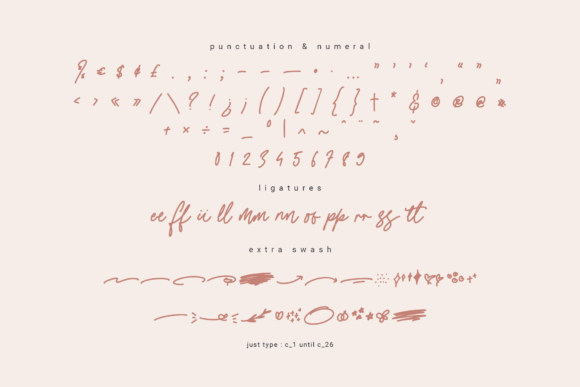 punctuation & numeral
% € $ ¢ £ . , : ; - – — • · … " ' ' ‚ " " „
‹ › « » / \ ? ! ¿ ¡ ( ) [ ] { } † * & © ® @
+ × ÷ = _ ° | ^ ~ ˆ ¨ ~ ˇ ¸
0 1 2 3 4 5 6 7 8 9
ligatures
ee ff ii ll mm nn os pp rr ss tt
extra swash
just type : c_1 until c_26